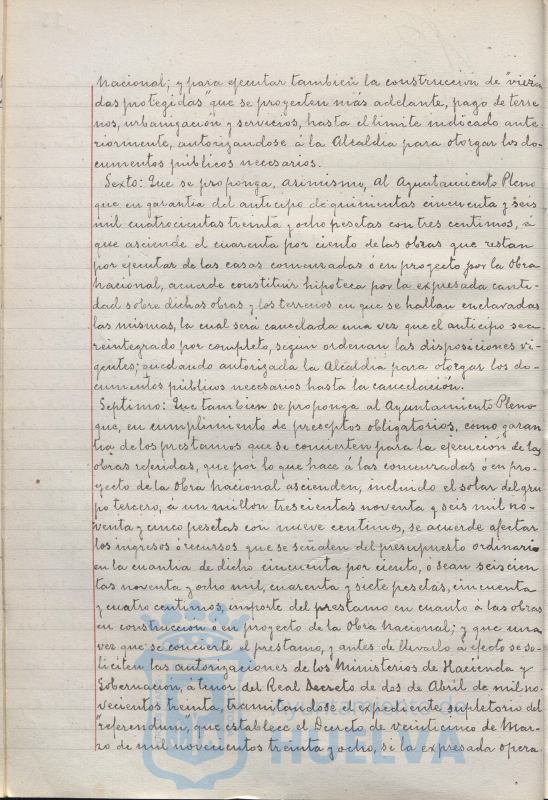 nacional; y para ejecutar también la construcción de "vivien
das protegidas" que se proyecten más adelante, pago de terre
nos, urbanización y servicios, hasta el límite indicado ante-
riormente, autorizandose á la Alcaldia para otorgar los do-
cumentos públicos necesarios.
Sexto: Que se proponga, asimismo, al Ayuntamiento Pleno
que en garantia del anticipo de quinientas cincuenta y seis
mil cuatrocientas treinta y ocho pesetas con tres centimos, á
que asciende el cuarenta por ciento de las obras que restan
por ejecutar de las casas comenzadas ó en proyecto por la Obra
nacional, acuerde constituir hipoteca por la expresada canti-
dad sobre dichas obras y los terrenos en que se hallan enclavadas
las mismas, la cual será cancelada una vez que el anticipo sea
reintegrado por completo, según ordenan las disposiciones vi-
gentes; quedando autorizada la Alcaldía para otorgar los do-
cumentos públicos necesarios hasta la cancelación.
Septimo: Que tambien se proponga al Ayuntamiento Pleno
que, en cumplimiento de preceptos obligatorios, como garan
tia de los prestamos que se concierten para la ejecución de las
obras referidas, que por lo que hace á las comenzadas ó en pro-
yecto de la Obra nacional ascienden, incluido el solar del gru
po tercero, á un millon trescientas noventa y seis mil no-
venta y cinco pesetas con nueve centimos, se acuerde afectar
los ingresos ó recursos que se señalen del presupuesto ordinario
en la cuantia de dicho cincuenta por ciento, ó sean seiscien
tas noventa y ocho mil, cuarenta y siete pesetas, cincuenta
y cuatro centimos, importe del prestamo en cuanto á las obras
en construcción ó en proyecto de la Obra nacional; y que una
vez que se concierte el prestamo, y antes de llevarlo á efecto se so-
liciten las autorizaciones de los Ministerios de Hacienda y
Gobernación, á tenor del Real Decreto de dos de Abril de mil no-
vecientos treinta, tramitandose el expediente supletorio del
"referendum", que establece el Decreto de veinticinco de Mar-
zo de mil novecientos treinta y ocho, si la expresada opera
HUELVA